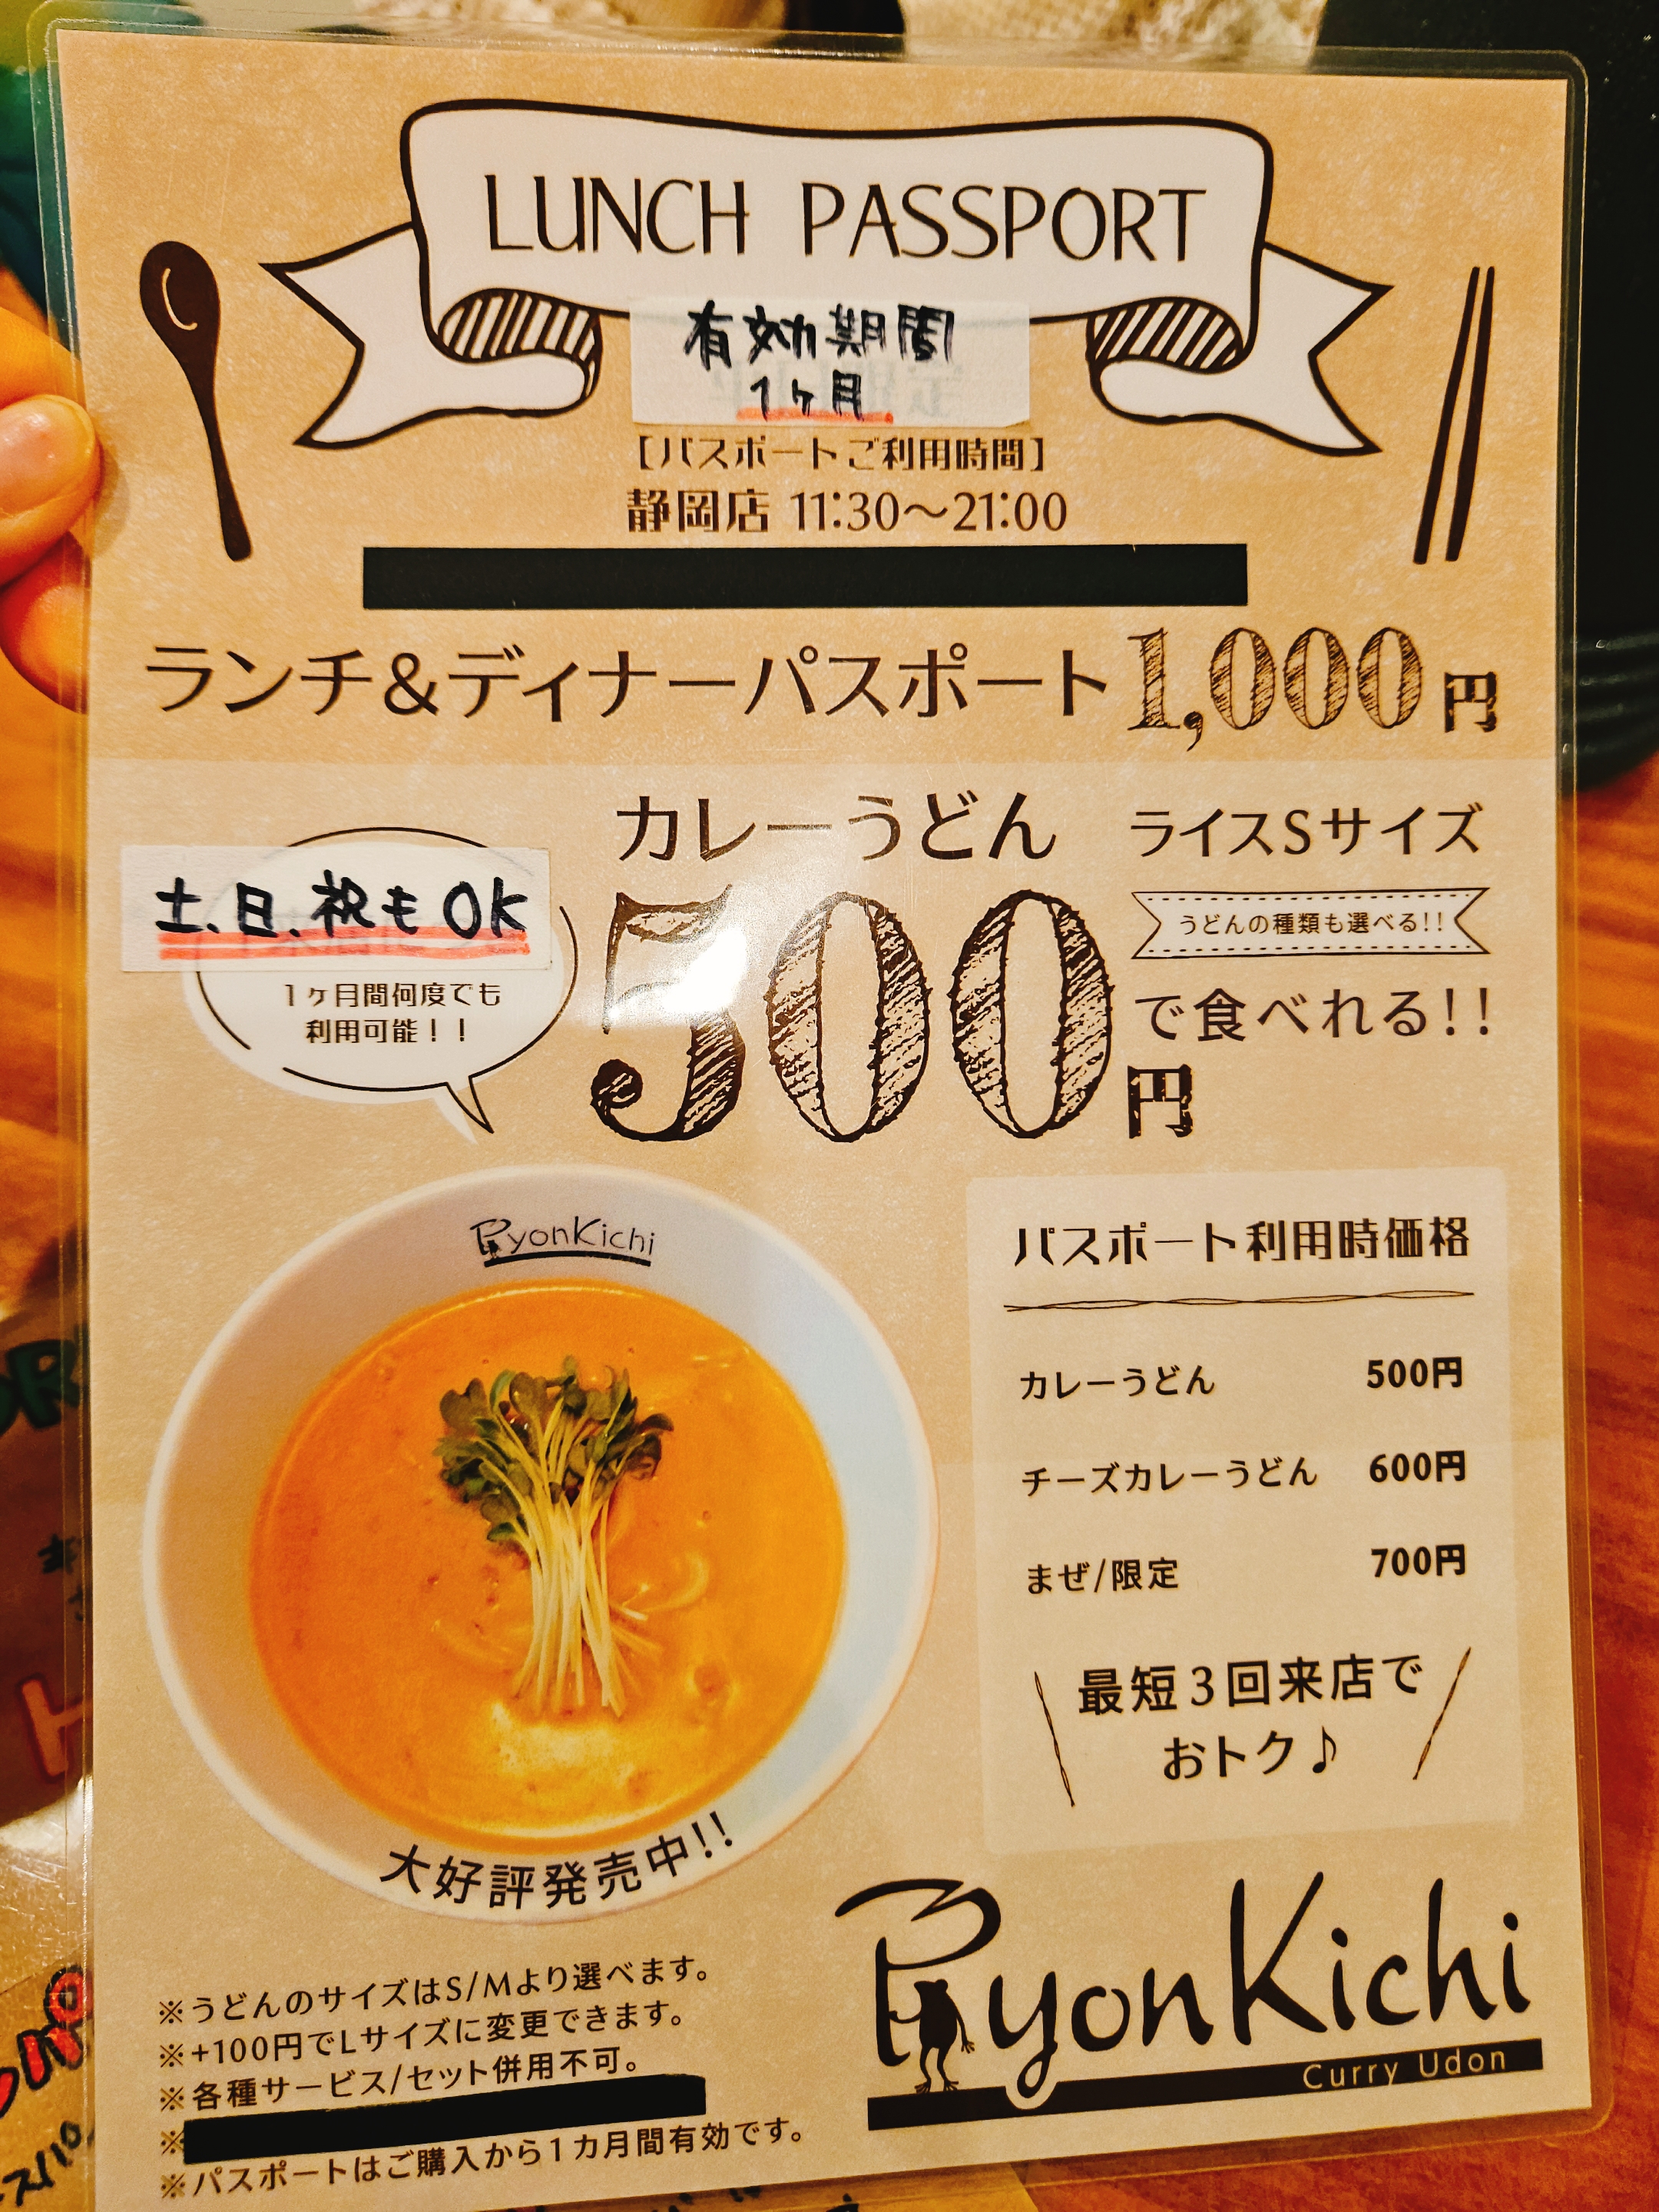 LUNCH PASSPORT
有効期間
1ヶ月
【パスポートご利用時間】
静岡店 11:30～21:00
ランチ&ディナーパスポート1,000円
カレーうどん
ライスSサイズ
うどんの種類も選べる!!
500円
で食べれる!!
土.日.祝もOK
1ヶ月間何度でも
利用可能!!
PyonKichi
パスポート利用時価格
カレーうどん 500円
チーズカレーうどん 600円
まぜ/限定 700円
最短3回来店で
おトク♪
大好評発売中!!
※うどんのサイズはS/Mより選べます。
※+100円でLサイズに変更できます。
※各種サービス/セット併用不可。
※
※パスポートはご購入から1カ月間有効です。
PyonKichi
Curry Udon